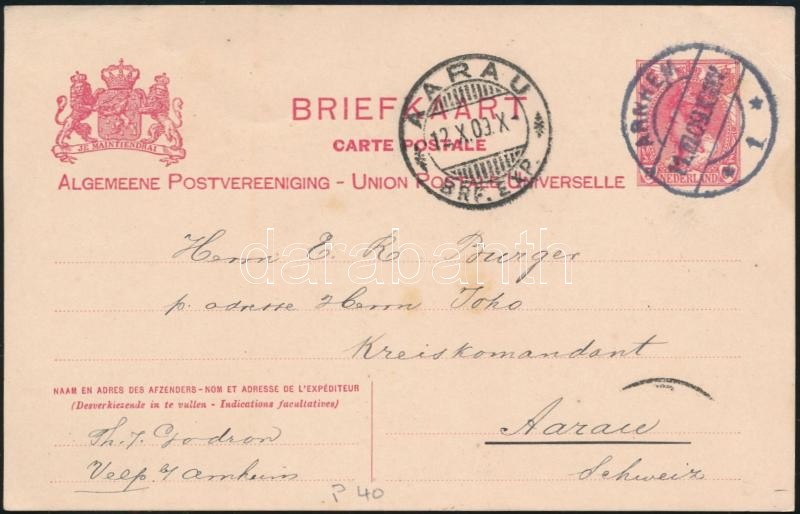 JE MAINTIENDRAI
BRIEFKAART
CARTE POSTALE
ALGEMEENE POSTVEREENIGING - UNION POSTALE UNIVERSELLE
AARAU
12.X.09.X-
BRF. EXP.
ARNHEM
1
NEDERLAND
darabanth
Herrn E. R. Burger
p. adresse Herrn Joho
Kreiskomandant
Aarau
Schweiz
NAAM EN ADRES DES AFZENDERS - NOM ET ADRESSE DE L'EXPÉDITEUR
(Desverkiezende in te vullen - Indications facultatives)
Th. J. Godron
Velp b/ Arnheim
P 40